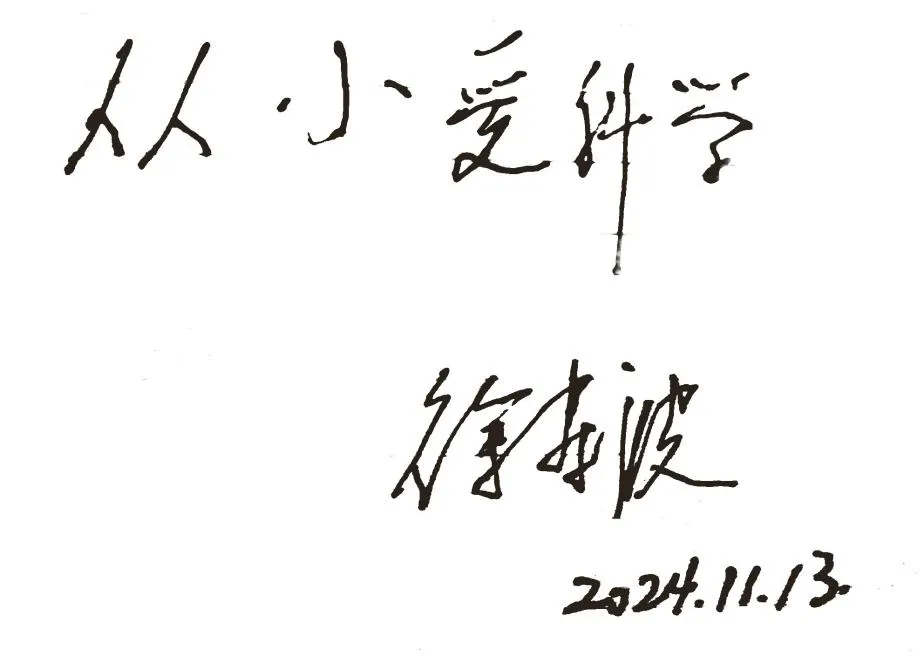 从小爱科学
徐
波
2024.11.13.